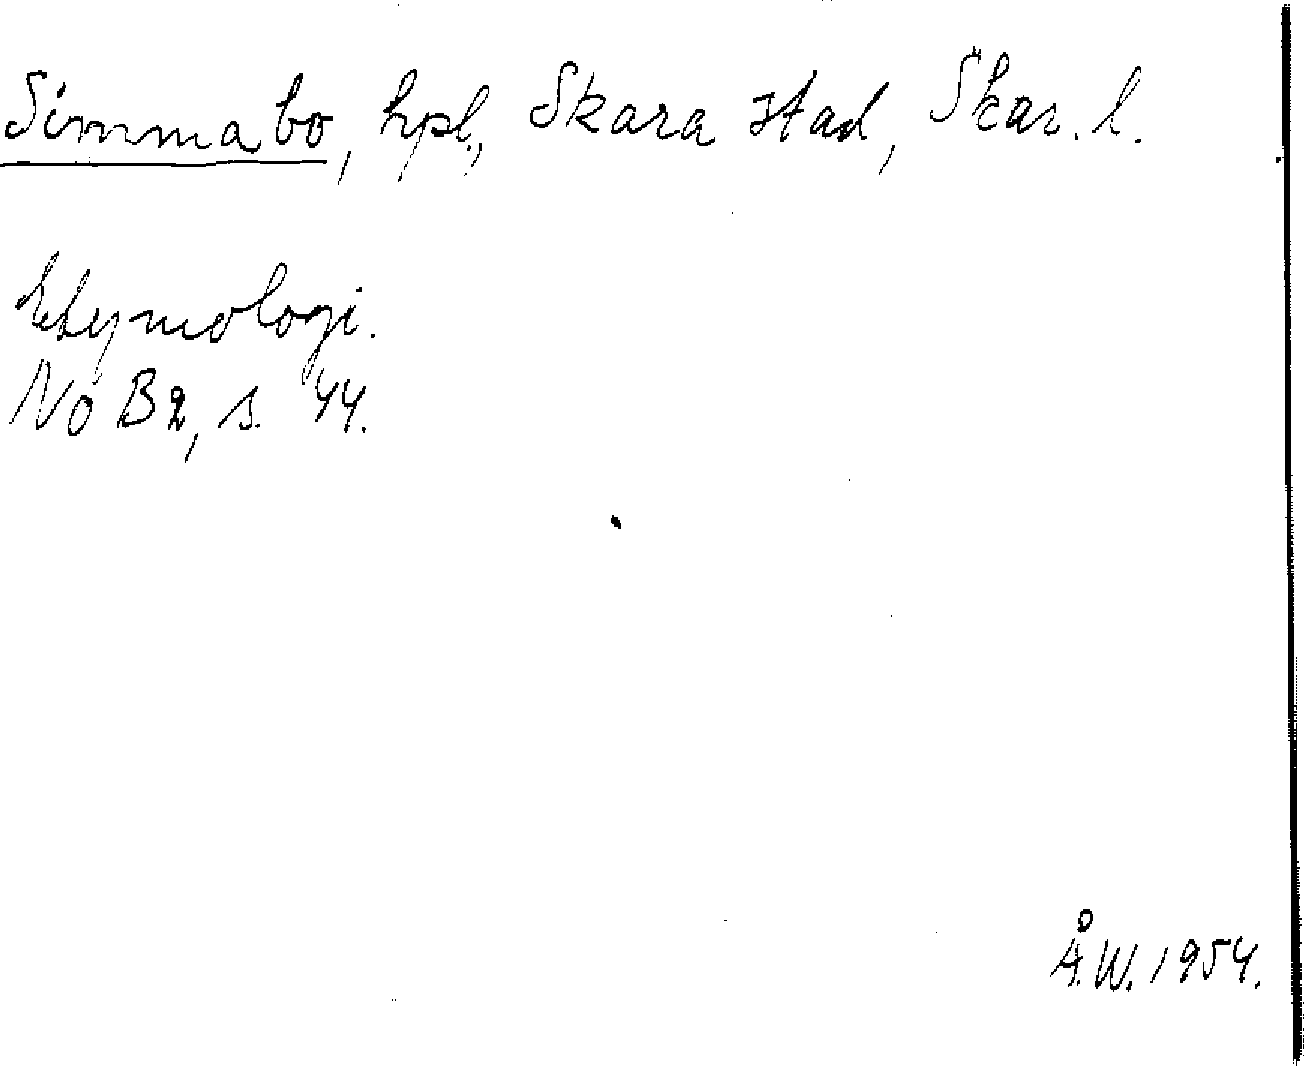 Simmabo, hpl., Skara stad, Skar. l.
Etymologi.
NoB 2, s. 44.
Å.W. 1954.